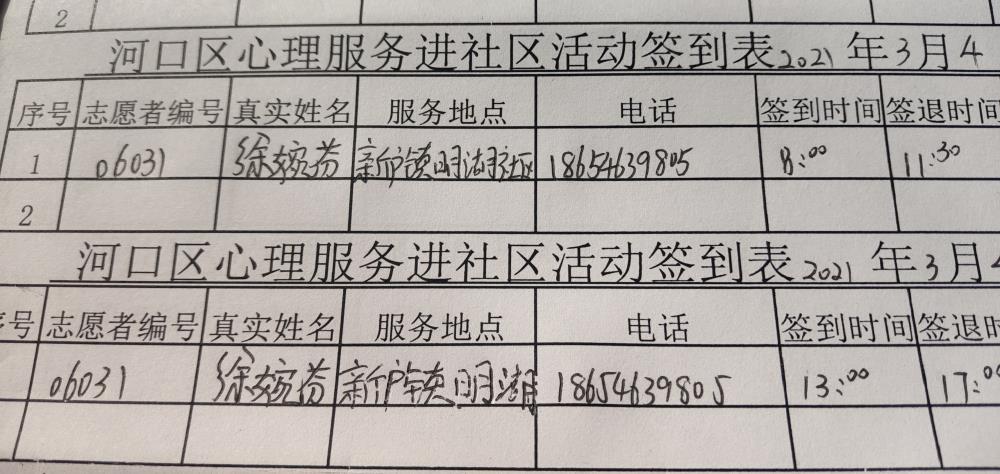 2
河口区心理服务进社区活动签到表2021年3月4
序号 志愿者编号 真实姓名 服务地点 电话 签到时间 签退时间
1 06031 徐婉芬 新户镇明湖社区 18654639805 8:00 11:30
2
河口区心理服务进社区活动签到表2021年3月4
序号 志愿者编号 真实姓名 服务地点 电话 签到时间 签退时
06031 徐婉芬 新户镇明湖 18654639805 13:00 17:00